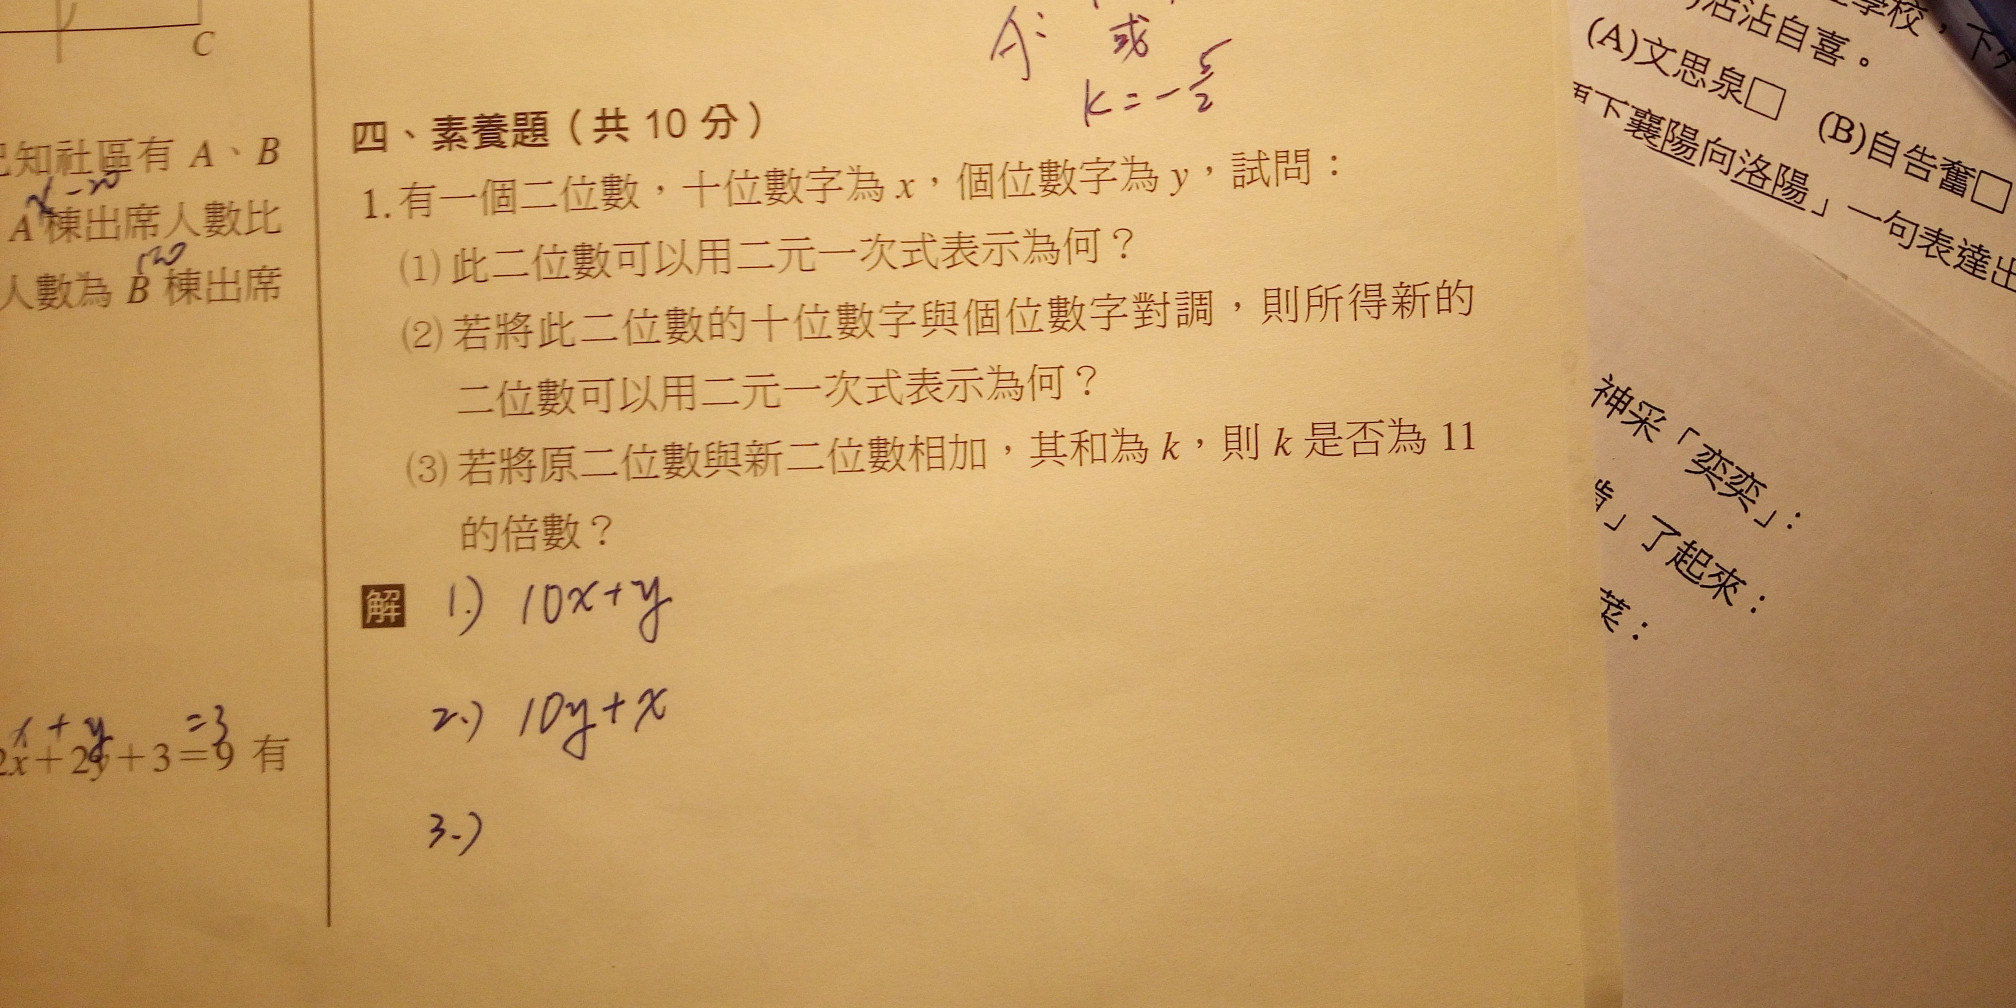 C
已知社區有 A、B
x-20
A 棟出席人數比
人數為 B 棟出席
x+y =3
2x+2y+3=9 有
A:
或
k=-5/2
四、素養題（共 10 分）
1. 有一個二位數，十位數字為 x，個位數字為 y，試問：
(1) 此二位數可以用二元一次式表示為何？
(2) 若將此二位數的十位數字與個位數字對調，則所得新的
二位數可以用二元一次式表示為何？
(3) 若將原二位數與新二位數相加，其和為 k，則 k 是否為 11
的倍數？
解 1.) 10x+y
2.) 10y+x
3.)
沾沾自喜。
(A)文思泉□ (B)自告奮□
下襄陽向洛陽」一句表達出
神采「奕奕」：
」了起來：